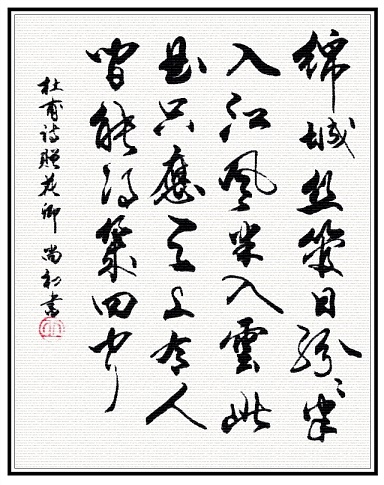 錦城丝管日紛々半
入江风半入雲此
曲只應天上有人
間能得幾回聞
杜甫诗贈花卿 尚書